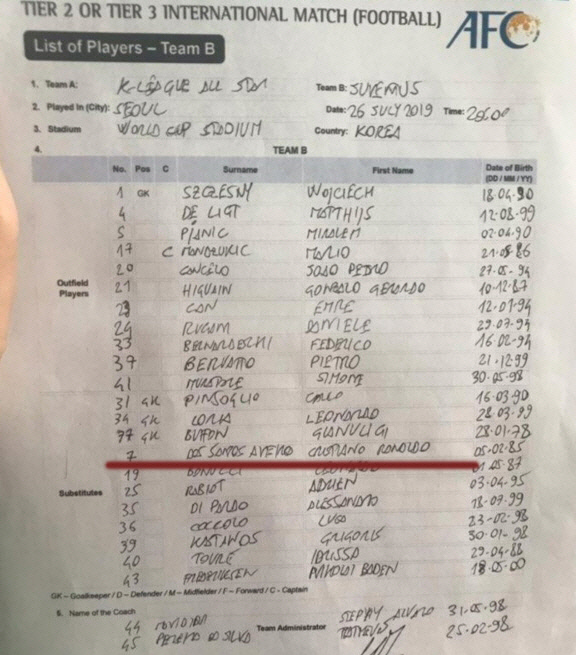 TIER 2 OR TIER 3 INTERNATIONAL MATCH (FOOTBALL)
AFC
List of Players – Team B
1. Team A: K-LEAGUE ALL STAR Team B: JUVENTUS
2. Played in (City): SEOUL Date: 26 JULY 2019 Time: 20:00
3. Stadium WORLD CUP STADIUM Country: KOREA
4. TEAM B
No. Pos C Surname First Name Date of Birth (DD / MM / YY)
Outfield Players
1 GK SZCZESNY WOJCIECH 18.04.90
4 DE LIGT MATTHIJS 12.08.99
5 PJANIC MIRALEM 02.04.90
17 C MANDZUKIC MARIO 21.05.86
20 CANCELO JOAO PEDRO 27.05.94
21 HIGUAIN GONZALO GERARDO 10.12.87
23 CAN EMRE 12.01.94
24 RUGANI DANIELE 29.07.94
33 BERNARDESCHI FEDERICO 16.02.94
37 BERUATTO PIETRO 21.12.99
41 MURATORE SIMONE 30.05.98
Substitutes
31 GK PINSOGLIO CARLO 16.03.90
34 GK LORIA LEONARDO 28.03.99
77 GK BUFFON GIANLUIGI 28.01.78
7 DOS SANTOS AVEIRO CRISTIANO RONALDO 05.02.85
19 BONUCCI 01.05.87
25 RABIOT ADRIEN 03.04.95
35 DI PARDO ALESSANDRO 18.07.99
36 COCCOLO LUCA 23-02-98
39 KASTANOS GRIGORIS 30-01-98
40 TOURE IDRISSA 29.04.98
43 NIKOLAI BADEN 18.05.00
GK – Goalkeeper / D – Defender / M – Midfielder / F – Forward / C - Captain
5. Name of the Coach Team Administrator
44 STEPHY ALVARO 31.05.98
45 PEREIRA DA SILVA MATHEUS 25.02.98